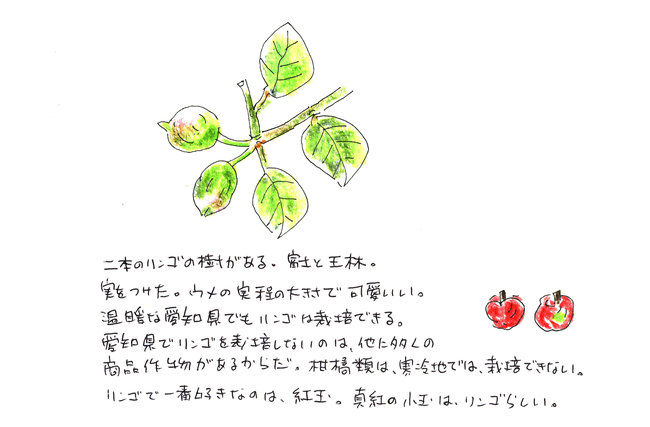 二本のリンゴの樹がある。富士と王林。
実をつけた。ウメの実程の大きさで可愛いい。
温暖な愛知県でもリンゴは栽培できる。
愛知県でリンゴを栽培しないのは、他に多くの
商品作物があるからだ。柑橘類は、寒冷地では、栽培できない。
リンゴで一番好きなのは、紅玉。真紅の小玉は、リンゴらしい。